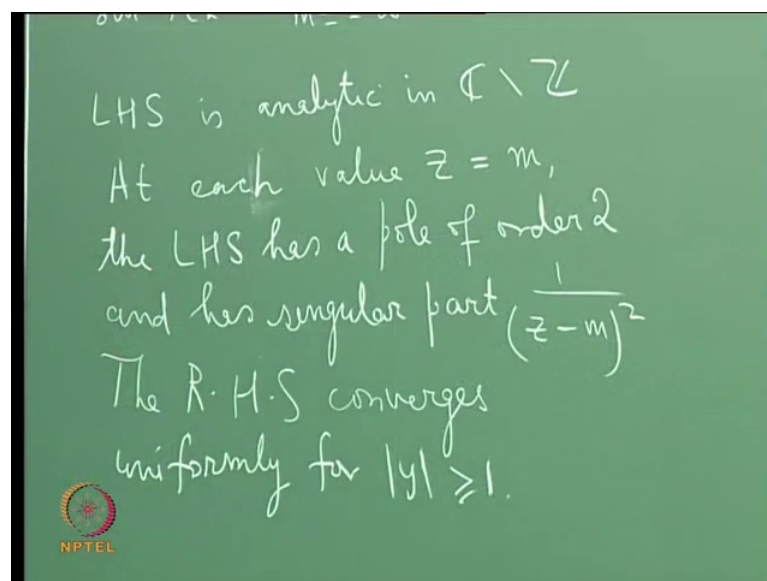 LHS is analytic in ℂ \ ℤ
At each value z = m,
the LHS has a pole of order 2
and has singular part 1/(z-m)²
The R.H.S converges
uniformly for |y| ≥ 1.
NPTEL